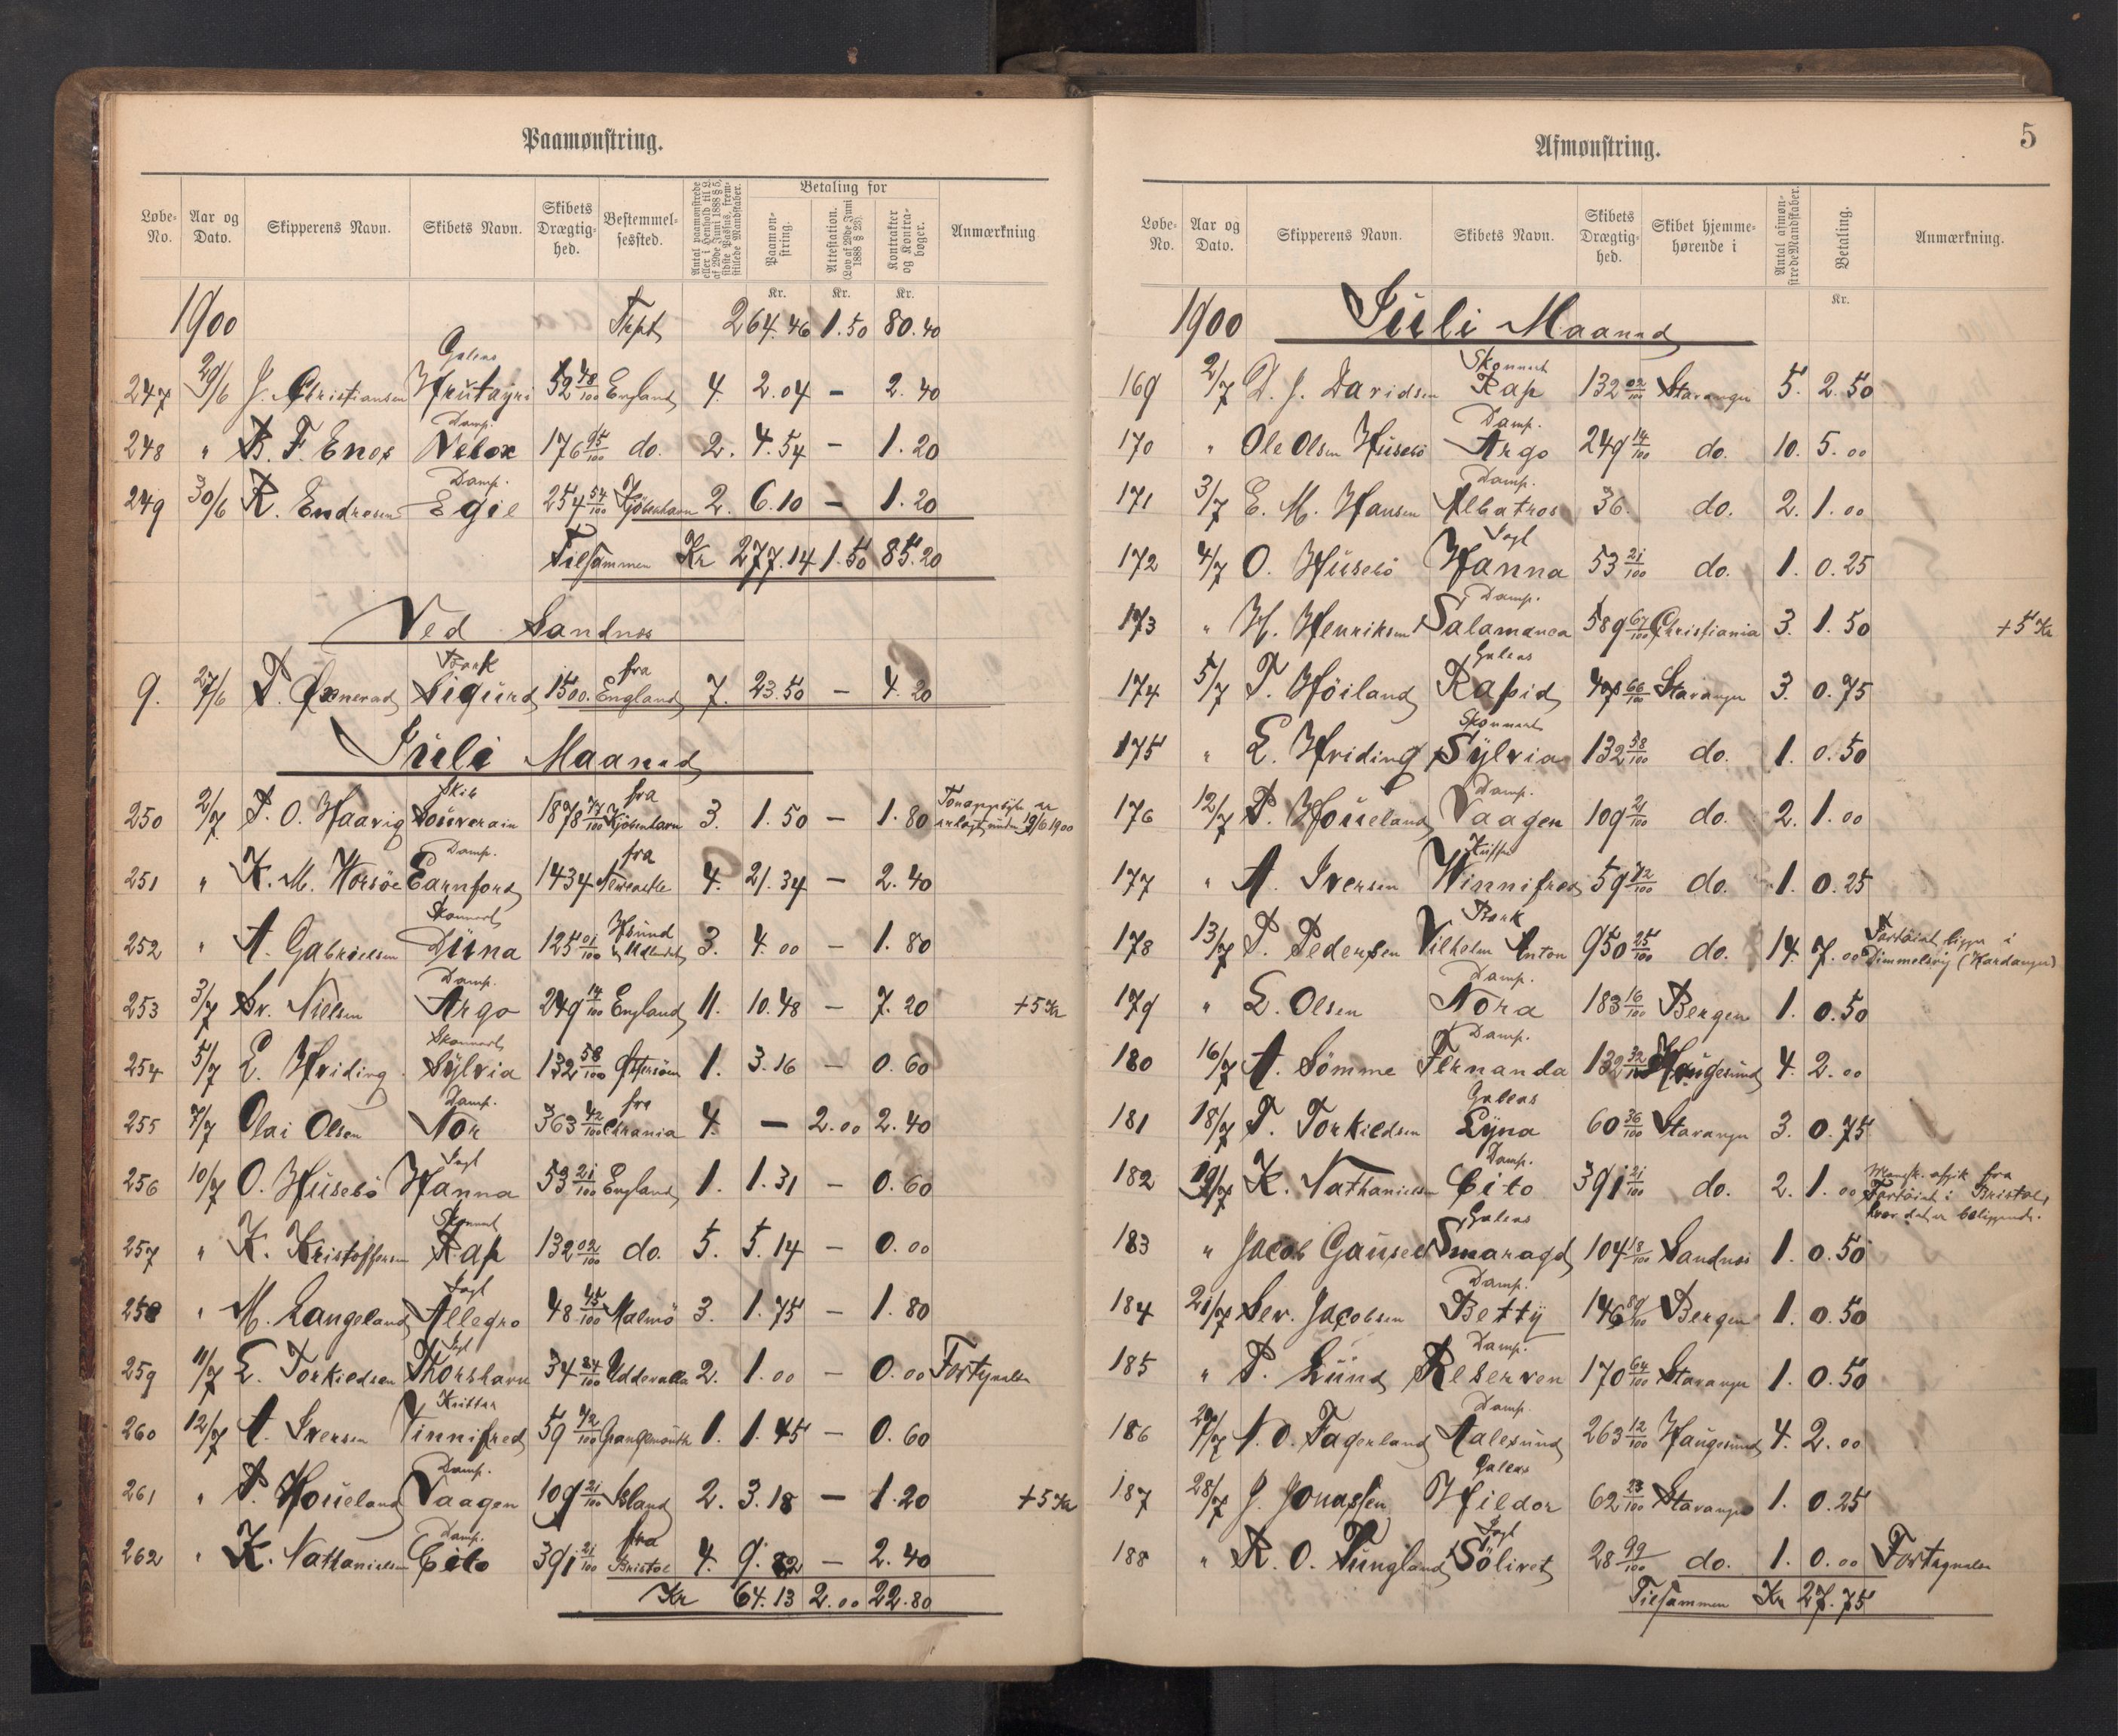 Paamønstring.
Løbe-No. Aar og Dato. Skipperens Navn. Skibets Navn. Skibets Drægtighed. Bestemmelsessted. Antal paamønstrede eller i Henhold til L. af 29de Juni 1888 § 5, sidste Passus, fremstillede Mandskaber. Betaling for Paamønstring. Attestation. (Lov af 29de Juni 1888 § 23). Kontrakter og Kontrabøger. Anmærkning
Kr. Kr. Kr.
1900 Trpt 264.46 1.50 80.40
247 29/6 J. Christiansen Galeas 52 48/100 England 4. 2.04 – 2.40
248 " B. F. Enos Damp. Velox 176 95/100 do. 2. 4.54 – 1.20
249 30/6 R. Endresen Damp. Egil 254 54/100 Kjøbenhavn 2. 6.10 – 1.20
Tilsammen Kr 277.14 1.50 85.20
Ved Sandnes
9. 27/6 Bark Sigurd 1500. fra England 7. 23.50 – 4.20
Juli Maaned
250 2/7 P. O. Haavig Skib Souverain 1878 74/100 fra Kjøbenhavn 3. 1.50 – 1.80 19/6 1900
251 " K. M. Horsöe Damp. Earnford 1434 fra Newcastle 4. 21.34 – 2.40
252 " A. Gabrielsen Skonnert Düna 125 01/100 Hsund & Udlandet 3. 4.00 – 1.80
253 3/7 Sv. Nielsen Damp. Argo 249 14/100 England 11. 10.48 – 7.20 +5 Kr
254 5/7 E. Hviding Skonnert Sylvia 132 58/100 Østersöen 1. 3.16 – 0.60
255 7/7 Olai Olsen Damp. Nor 363 42/100 fra Chrania 4. – 2.00 2.40
256 10/7 O. Husebö Jagt Hanna 53 21/100 England 1. 1.31 – 0.60
257 " K. Kristoffersen Skonnert Rap 132 02/100 do. 5. 5.14 – 0.00
258 " M. Langeland Jagt Allegro 48 45/100 Malmö 3. 1.75 – 1.80
259 11/7 E. Torkildsen Jagt Thorshavn 34 84/100 Uddevalla 2. 1.00 – 0.00 Fortynelse
260 12/7 A. Iversen Kutter Vinnifred 59 72/100 Grangemouth 1. 1.45 – 0.60
261 " P. Houeland Damp. Vaagen 109 21/100 Island 2. 3.18 – 1.20 +5 Kr
262 " K. Nathanielsen Damp. Cito 391 21/100 fra Bristol 4. 9.82 – 2.40
Kr 64.13 2.00 22.80
Afmønstring.
5
Løbe-No. Aar og Dato. Skipperens Navn. Skibets Navn. Skibets Drægtighed. Skibet hjemmehørende i Antal afmønstrede Mandskaber. Betaling. Anmærkning.
Kr.
1900 Juli Maaned
169 2/7 D. J. Davidsen Skonnert Rap 132 02/100 Stavanger 5. 2.50
170 " Ole Olsen Husebö Damp. Argo 249 14/100 do. 10. 5.00
171 3/7 E. M. Hansen Damp. Albatros 36. do. 2. 1.00
172 4/7 O. Husebö Jagt Hanna 53 21/100 do. 1. 0.25
173 " H. Henriksen Damp. Salamanca 589 67/100 Christiania 3. 1.50 +5 Kr
174 5/7 T. Höiland Galeas Rapid 66/100 Stavanger 3. 0.75
175 " E. Hviding Skonnert Sylvia 132 58/100 do. 1. 0.50
176 12/7 P. Houeland Damp. Vaagen 109 21/100 do. 2. 1.00
177 " A. Iversen Kutter Winnifred 59 72/100 do. 1. 0.25
178 13/7 P. Pedersen Bark Vilhelm Anton 950 25/100 do. 14. 7.00 Fartöiet ligger i Dimmelsvig (Hardanger)
179 " E. Olsen Damp. Nora 183 16/100 Bergen 1. 0.50
180 16/7 A. Sömme Damp. Fernanda 132 32/100 Haugesund 4. 2.00
181 18/7 T. Torkildsen Galeas Lyna 60 36/100 Stavanger 3. 0.75
182 19/7 K. Nathanielsen Damp. Cito 391 21/100 do. 2. 1.00 Mansk. afgik fra Fartöiet i Bristol, hvor det er beliggende.
183 " Jacob Gausel Galeas Smaragd 104 18/100 Sandnes 1. 0.50
184 21/7 Sev. Jacobsen Damp. Betty 146 89/100 Bergen 1. 0.50
185 " P. Lund Damp. Reserven 170 64/100 Stavanger 1. 0.50
186 N. O. Fagerland Damp. Aalesund 263 12/100 Haugesund 4. 2.00
187 28/7 J. Jonassen Galeas Hildor 62 23/100 Stavanger 1. 0.25
188 " R. O. Tungland Jagt Sölivet 28 99/100 do. 1. 0.00 Fortynelse
Tilsammen Kr 27.75